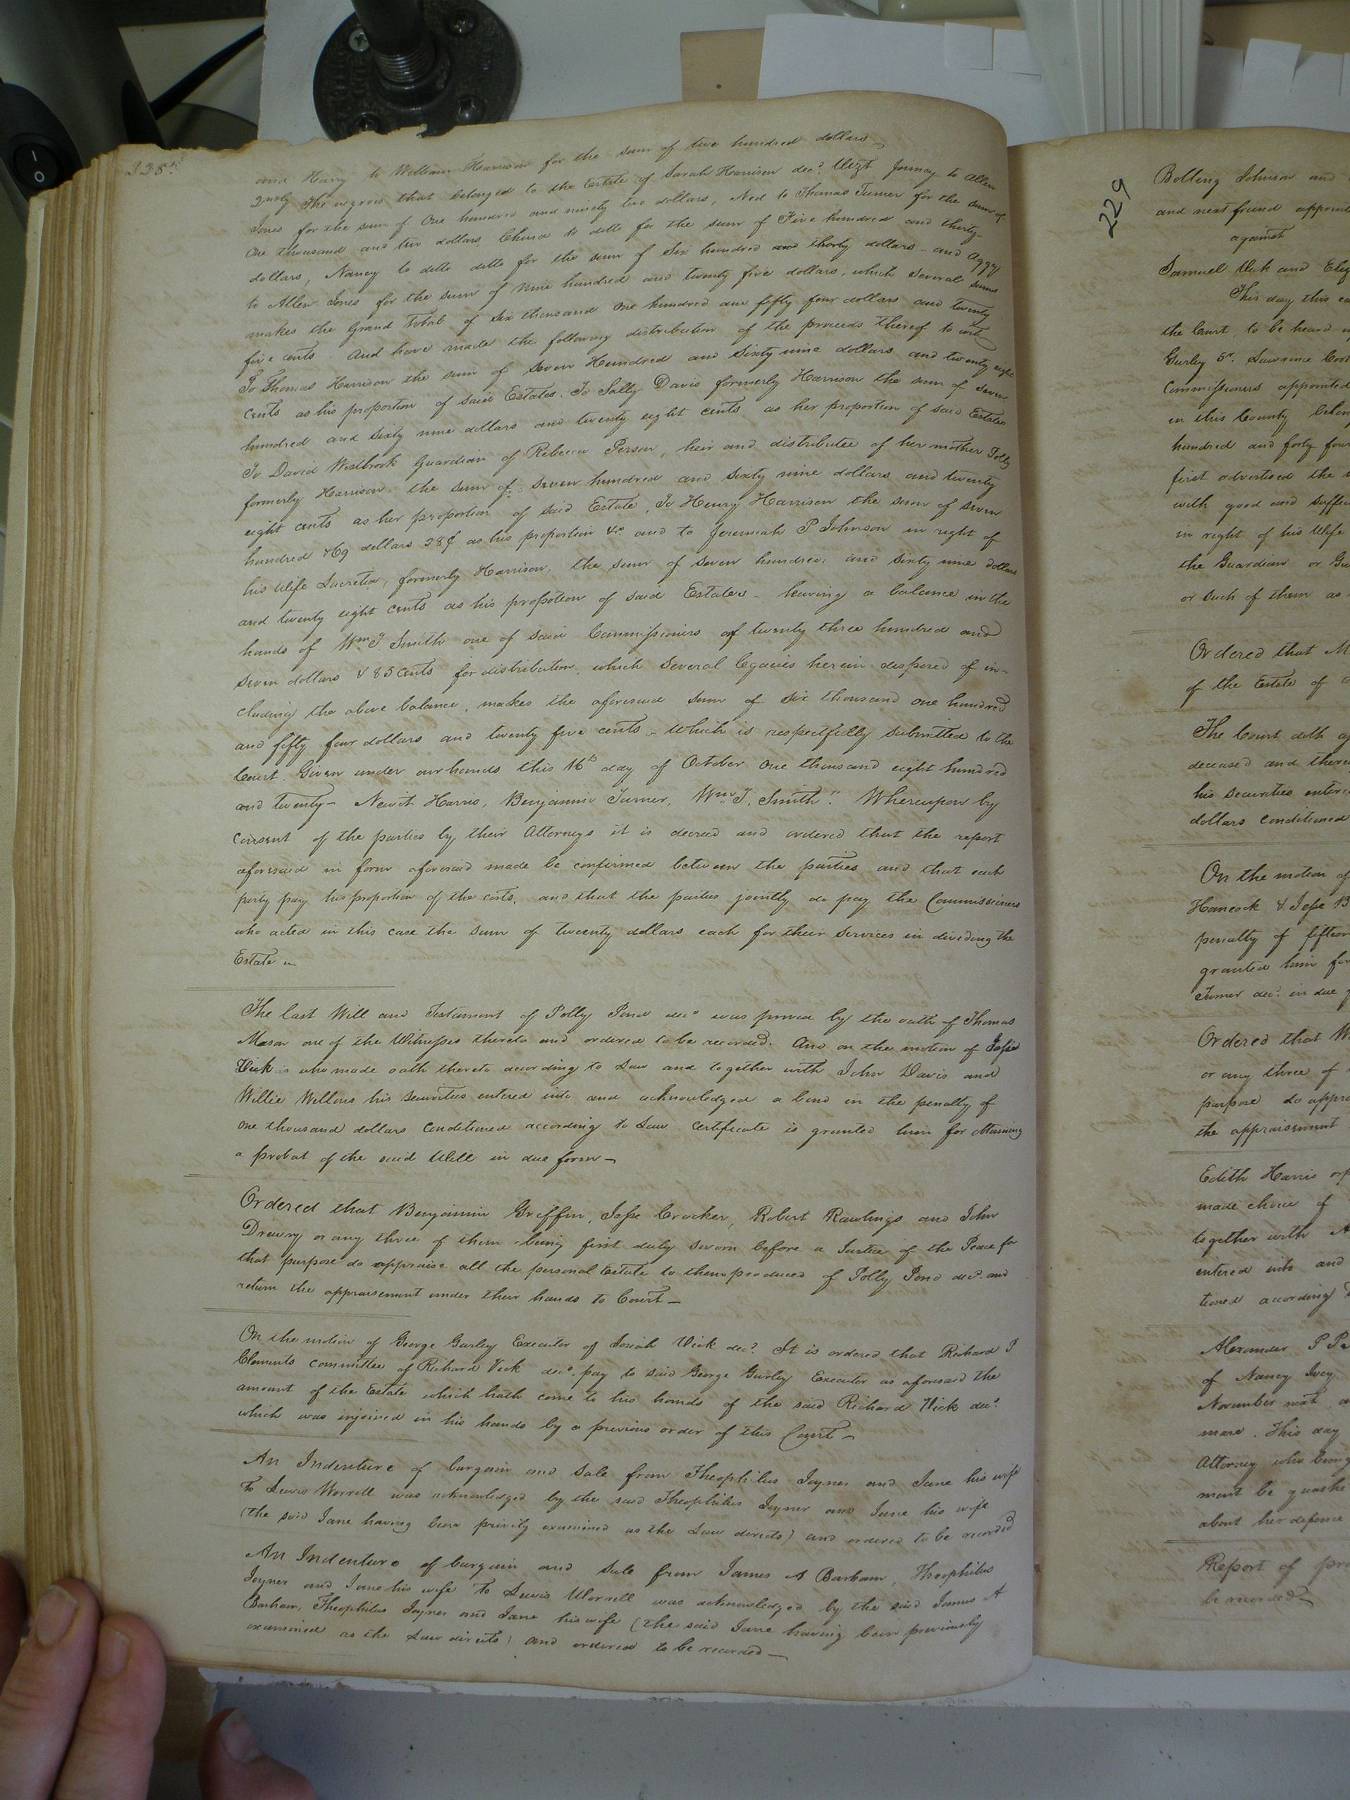 228
and Harry to William Harrison for the sum of two hundred dollars
2ndly The negroes that belonged to the Estate of Sarah Harrison decd. Vizt. Jenney to Allen
Jones for the sum of One hundred and ninety two dollars, Ned to Thomas Turner for the sum of
One thousand and two dollars, to ditto for the sum of Five hundred and thirty
dollars, Nancy to ditto ditto for the sum of Six hundred and thirty dollars - and Aggy
to Allen Jones for the sum of Nine hundred and twenty five dollars, which several sums
makes the Grand Total of Six thousand One hundred and fifty four dollars and twenty
five cents. And have made the following distribution of the proceeds thereof to wit
To Thomas Harrison the sum of Seven Hundred and Sixty nine dollars and twenty eight
cents as his proportion of said Estates. To Sally Davis formerly Harrison the sum of Seven
hundred and Sixty nine dollars and twenty eight cents as her proportion of said Estates
To David Westbrook Guardian of Rebecca Person, heir and distributee of her mother Polly
formerly Harrison, the sum of Seven hundred and Sixty nine dollars and twenty
eight cents as her proportion of said Estate, To Henry Harrison the sum of Seven
hundred & 69 dollars 28¢ as his proportion &c and to Jeremiah P Johnson in right of
his Wife Lucretia, formerly Harrison, the sum of Seven hundred, and Sixty nine dollars
and twenty eight cents as his propotion of said Estates - leaving a balance in the
hands of Wm. J Smith one of said Commissioners of twenty three hundred and
Seven dollars & 85 Cents for distribution, which several legacies herein disposed of in-
cluding the above balance, makes the aforesaid Sum of Six thousand one hundred
and fifty four dollars and twenty five cents - Which is respectfully submitted to the
Court. Given under our hands this 16th day of October One thousand eight hundred
and twenty - Newit Harris, Benjamin Turner, Wm. J. Smith." Whereupon by
Consent of the parties by their Attorneys it is decreed and ordered that the report
aforesaid in form aforesaid made be confirmed between the parties and that each
party pay his proportion of the costs, and that the parties jointly do pay the Commissioners
who acted in this case the sum of twenty dollars each for their Services in dividing the
Estate
The last Will and Testament of Polly Pond decd was proved by the oath of Thomas
Mason one of the Witnesses thereto and ordered to be recorded. And on the motion of
Vick who made oath thereto according to Law and together with John Davis and
Willie his Securities entered into and acknowledged a bond in the penalty of
One thousand dollars Conditioned according to Law Certificate is granted him for obtaining
a probat of the said Will in due form -
Ordered that Benjamin Griffin, Jesse Crocker, Robert Rawlings and John
Drewry or any three of them being first duly sworn before a Justice of the Peace for
that purpose do appraise all the personal Estate to them produced of Polly Pond decd. and
return the appraisement under their hands to Court -
On the motion of George Gurley Executor of Josiah Vick decd. It is ordered that Richard J
Clements committee of Richard Vick decd. pay to said George Gurley Executor as aforesaid the
amount of the Estate which hath come to his hands of the said Richard Vick decd.
which was injoined in his hands by a previous order of this Court -
An Indenture of bargain and Sale from Theophilus Joyner and Jane his wife
To Lewis Worrell was acknowledged by the said Theophilus Joyner and Jane his wife
(the said Jane having been privily examined as the Law directs) and ordered to be recorded
An Indenture of bargain and Sale from James A Barham, Theophilus
Joyner and Jane his wife To Lewis Worrell was acknowledged by the said James A
Barham, Theophilus Joyner and Jane his wife (the said Jane having been previously
examined as the Law directs) and ordered to be recorded -
229
Bolling Johnson and
and next friend
against
Samuel Vick and
This day this
the Court to be heard
Gurley Sr. Lawrence
Commissioners appointed
in this County
hundred and forty four
first advertised the
with good and
in right of his Wife
the Guardian or
or such of them as
Ordered that
of the Estate of
The Court doth
deceased and
his securities
dollars conditioned
On the motion of
Hancock & Jesse
penalty of
granted him for
Turner decd. in due
Ordered that
or any three of
purpose do
the appraisement
Edith Harris
made choice of
together with
entered into and
tioned according
Alexander P
of Nancy Ivey
November next
more. This day
Attorney who
ment be
about her defence
Report of
be recorded